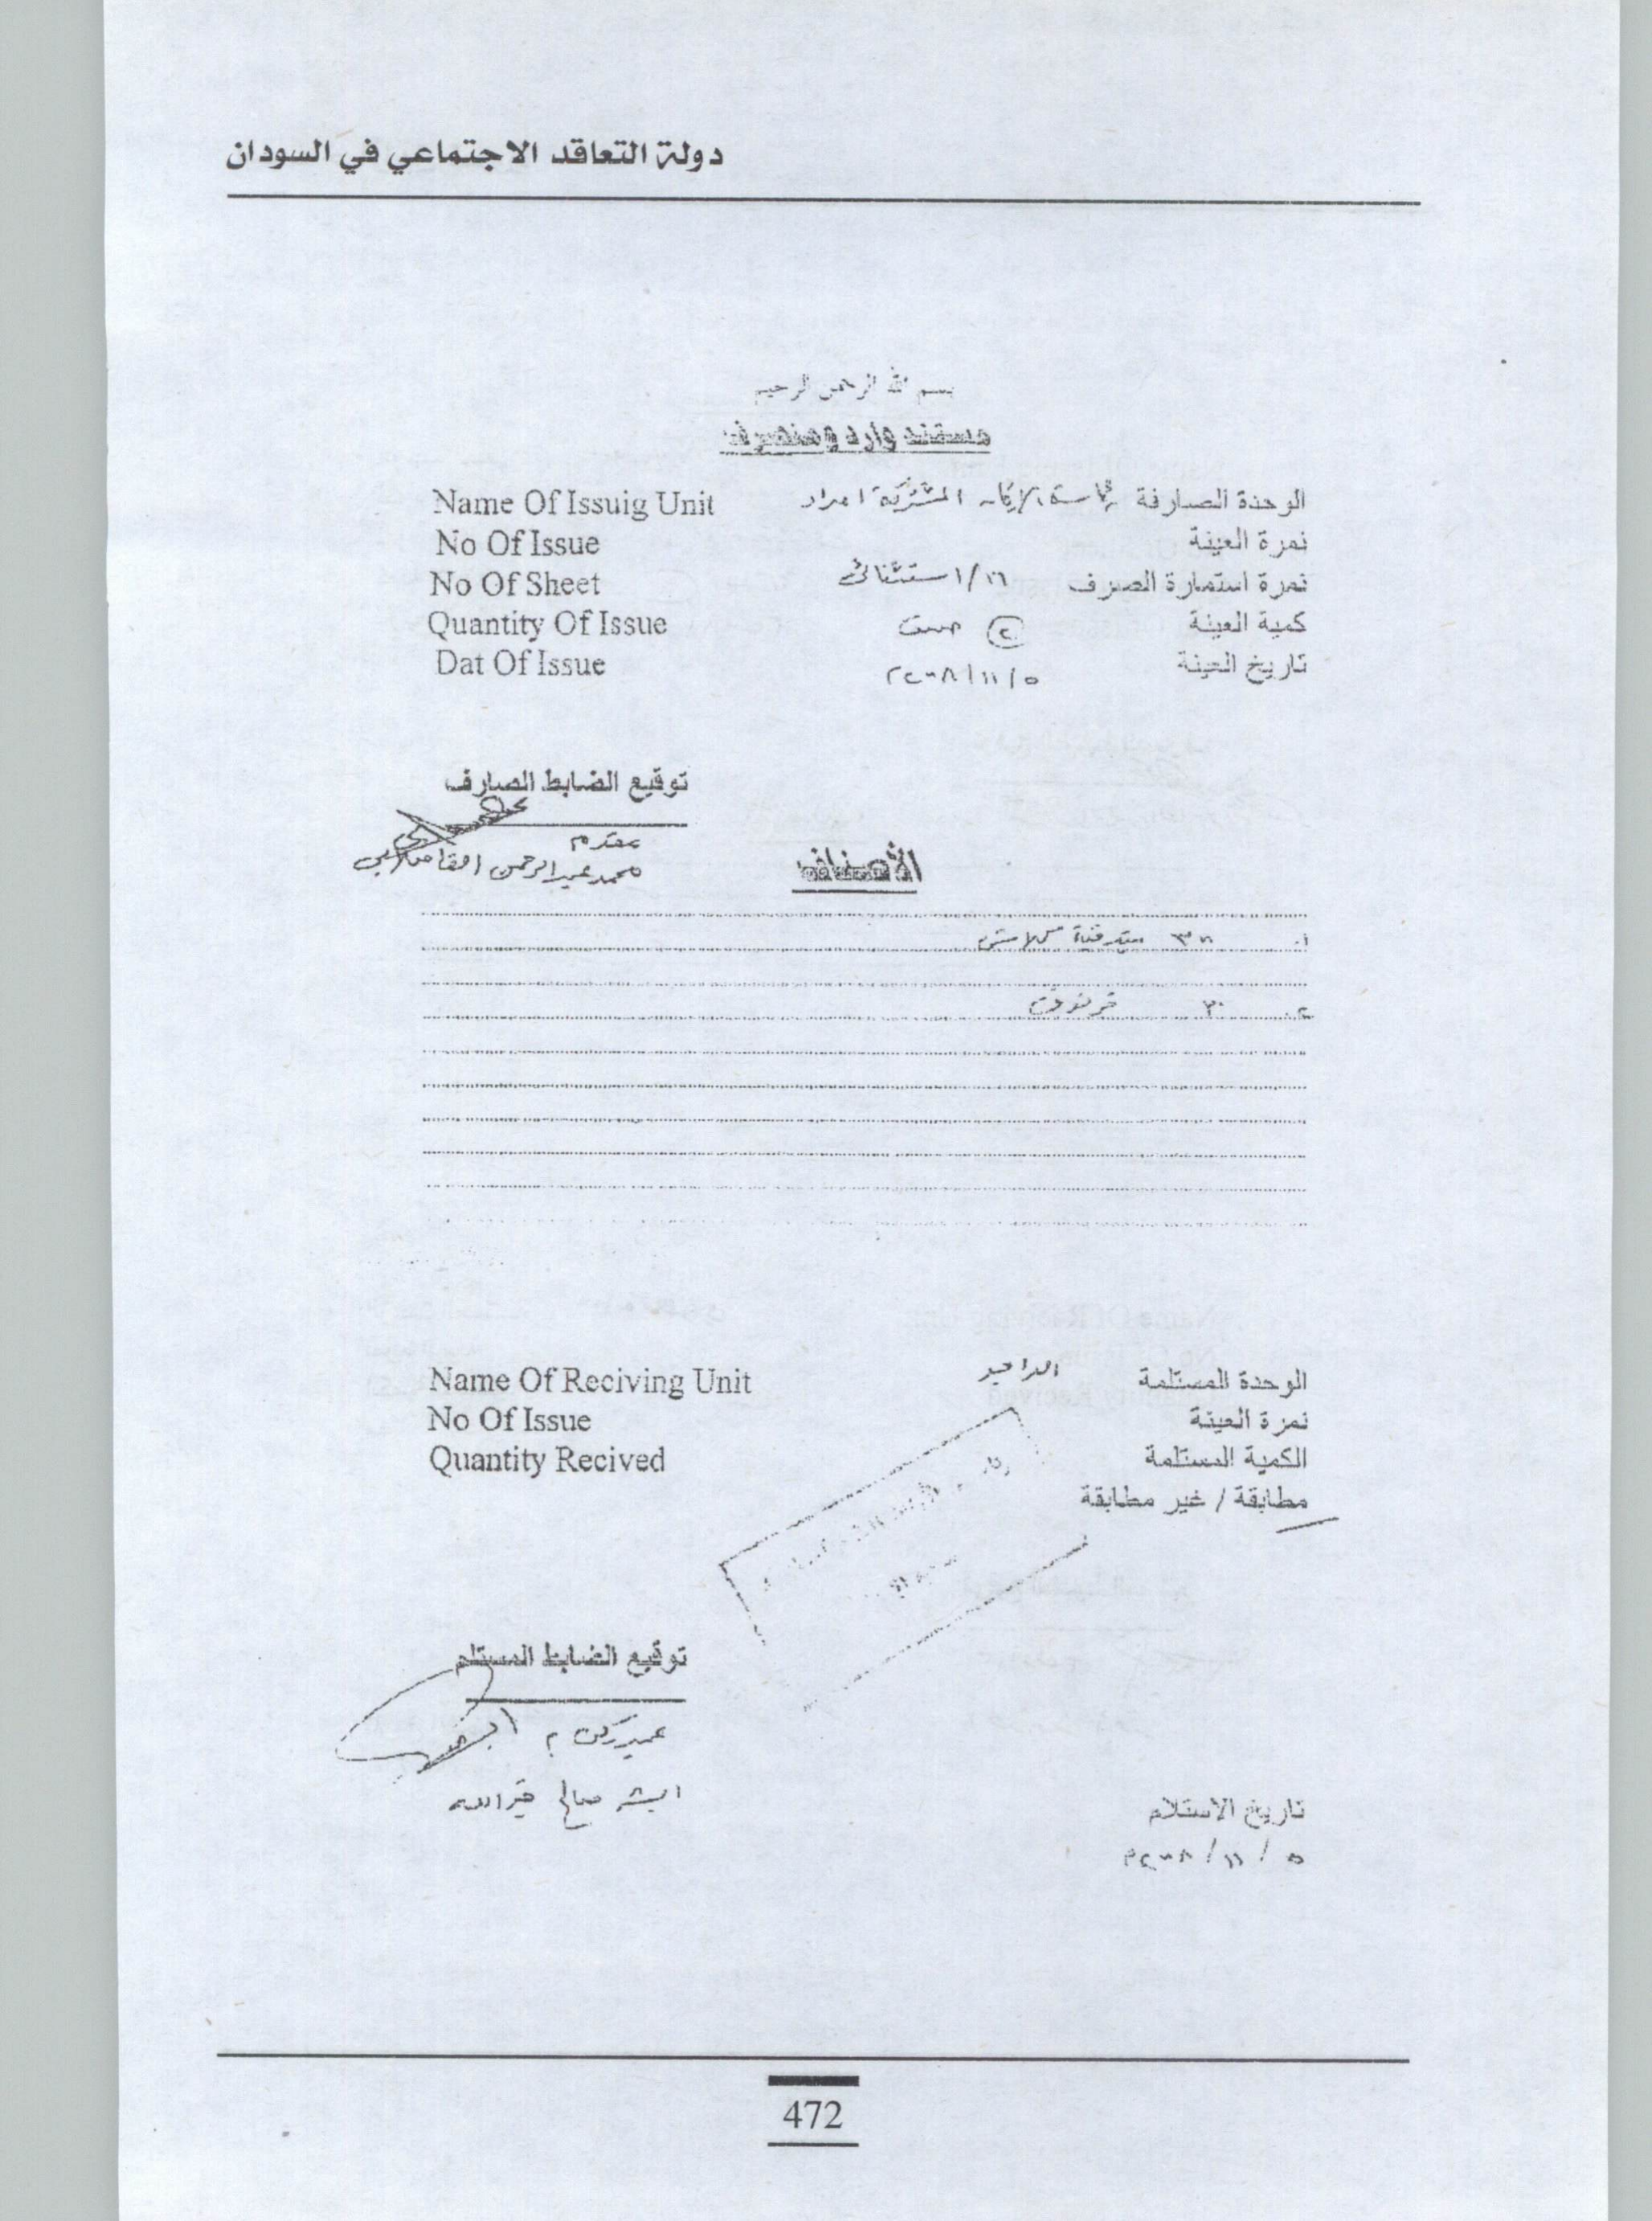 دولة التعاقد الاجتماعي في السودان
بسم الله الرحمن الرحيم
مستند وارد ومنصرف
Name Of Issuig Unit الوحدة الصارفة رئاسة الأركان المشتركة امداد
No Of Issue نمرة العينة
No Of Sheet نمرة استمارة الصرف ١٦/١ استثنائي
Quantity Of Issue كمية العينة ② صنف
Dat Of Issue تاريخ العينة ٥/١١/٢٠٠٨
توقيع الضابط الصارف
مقدم
محمد عبدالرحمن
الأصناف
١. ٣٠٠ بندقية كلاش
٢. ٣٠
Name Of Reciving Unit الوحدة المستلمة
No Of Issue نمرة العينة
Quantity Recived الكمية المستلمة
مطابقة / غير مطابقة
توقيع الضابط المستلم
عميد ركن
صالح خيرالله
تاريخ الاستلام
٥/١١/٢٠٠٨م
472